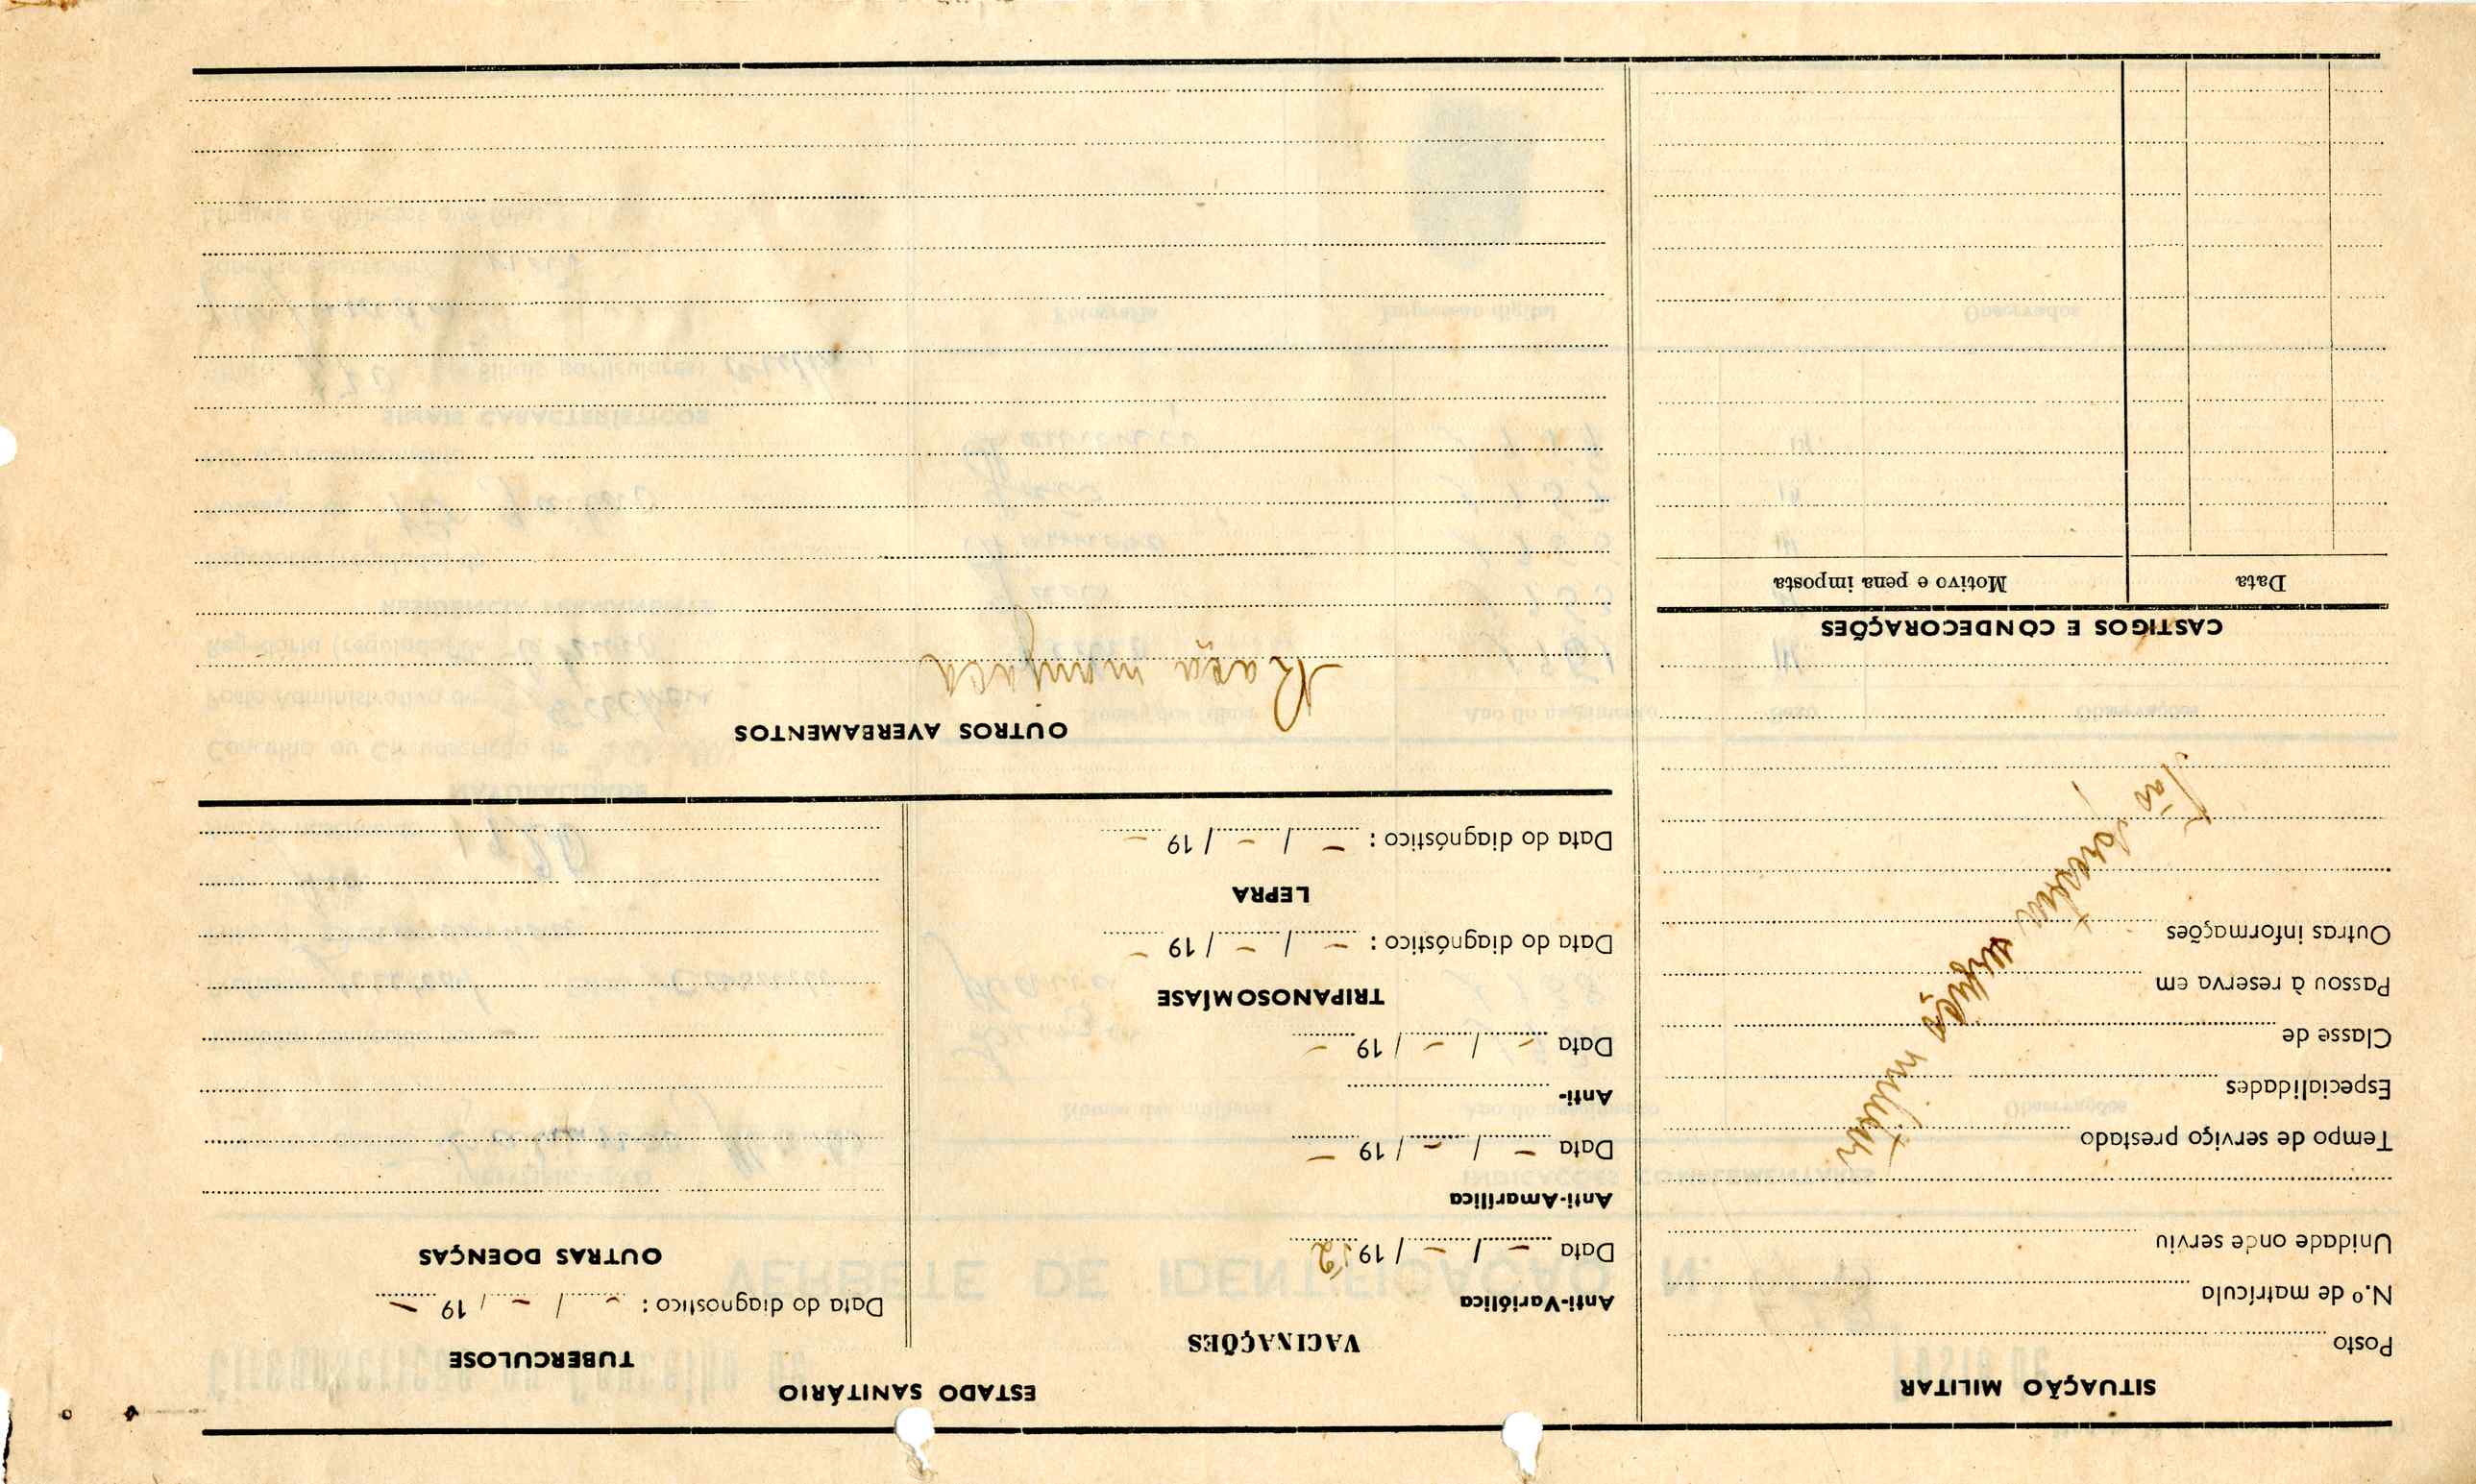 SITUAÇÃO MILITAR
Posto
N.º de matrícula
Unidade onde serviu
Tempo de serviço prestado
Especialidades
Classe de
Passou à reserva em
Outras informações
Não prestou serviço militar
CASTIGOS E CONDECORAÇÕES
Data Motivo e pena imposta
ESTADO SANITÁRIO
VACINAÇÕES
Anti-Variólica
Data - / - / 1952
Anti-Amarílica
Data - / - / 19 -
Anti-
Data - / - / 19 -
TRIPANOSOMÍASE
Data do diagnóstico : - / - / 19 -
LEPRA
Data do diagnóstico : - / - / 19 -
TUBERCULOSE
Data do diagnostico : - / - / 19 -
OUTRAS DOENÇAS
OUTROS AVERBAMENTOS
Raça manjaca